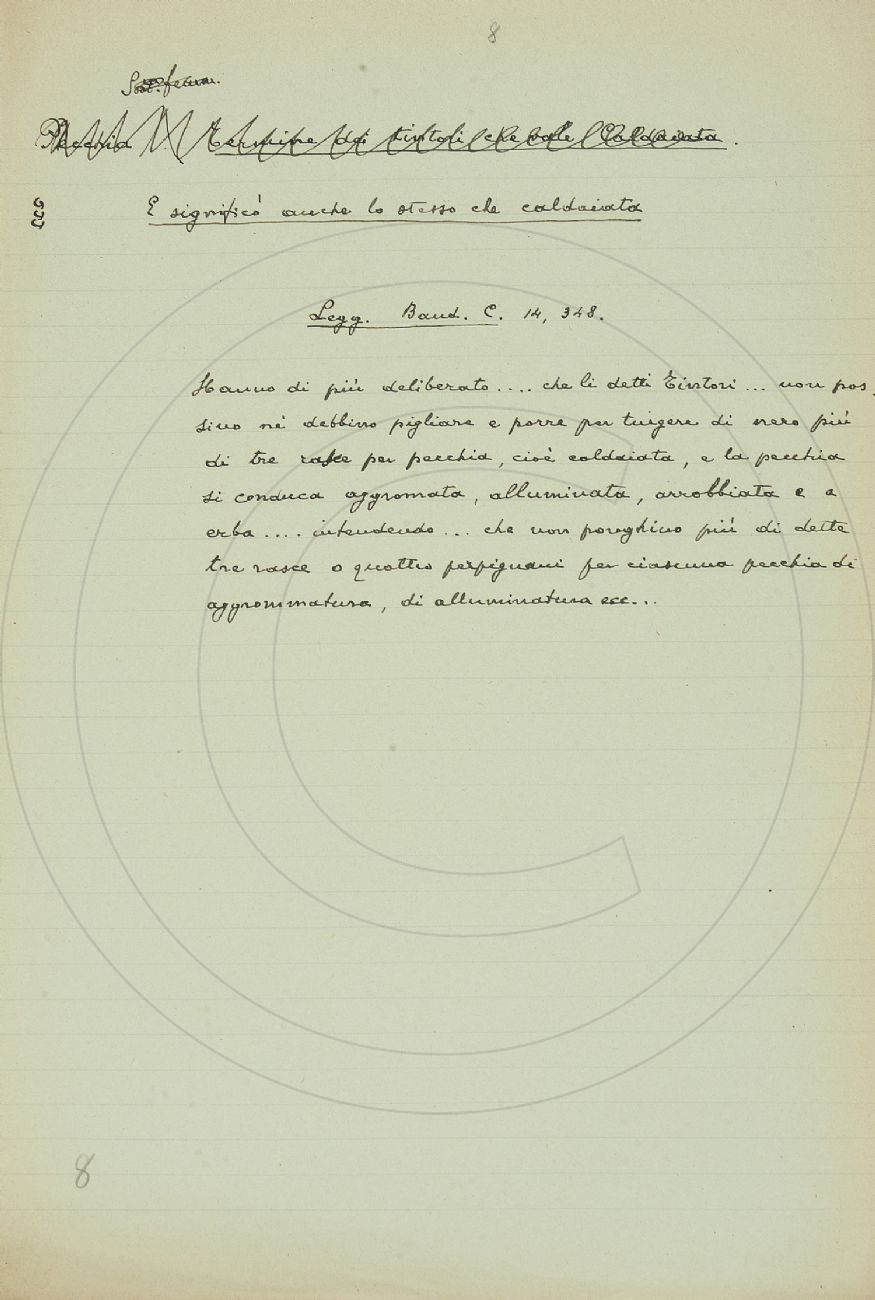 8
Sost. femm.
Pecchia Termine dei tintori che vale Caldaiata.
E significò anche lo stesso che caldaiata
Legg. Band. C. 14, 348.
Hanno di più deliberato .... che li detti Tintori ... non pos-
sino nè debbino pigliare e porre per tingere di nero più
di tre rasce per pecchia, cioè caldaiata, e la pecchia
si conduca aggromata, alluminata, arrobbiata e a
erba .... intendendo ... che non ponghino più di dette
tre rasce o quattro perpignani per ciascuna pecchia di
aggrommatura, di alluminatura ecc...
8